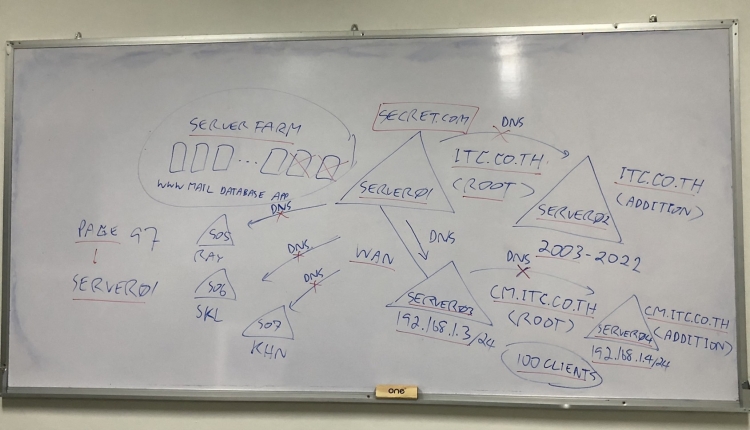 SECRET.COM
DNS
SERVER FARM
ITC.CO.TH
(ROOT)
WWW MAIL DATABASE APP
SERVER01
ITC.CO.TH
(ADDITION)
SERVER02
2003-2022
DNS
S05
RAY
PAGE 97
SERVER01
DNS
S06
SKL
DNS
S07
KHN
WAN
DNS
SERVER03
192.168.1.3/24
DNS
CM.ITC.CO.TH
(ROOT)
CM.ITC.CO.TH
(ADDITION)
SERVER04
192.168.1.4/24
100 CLIENTS
one